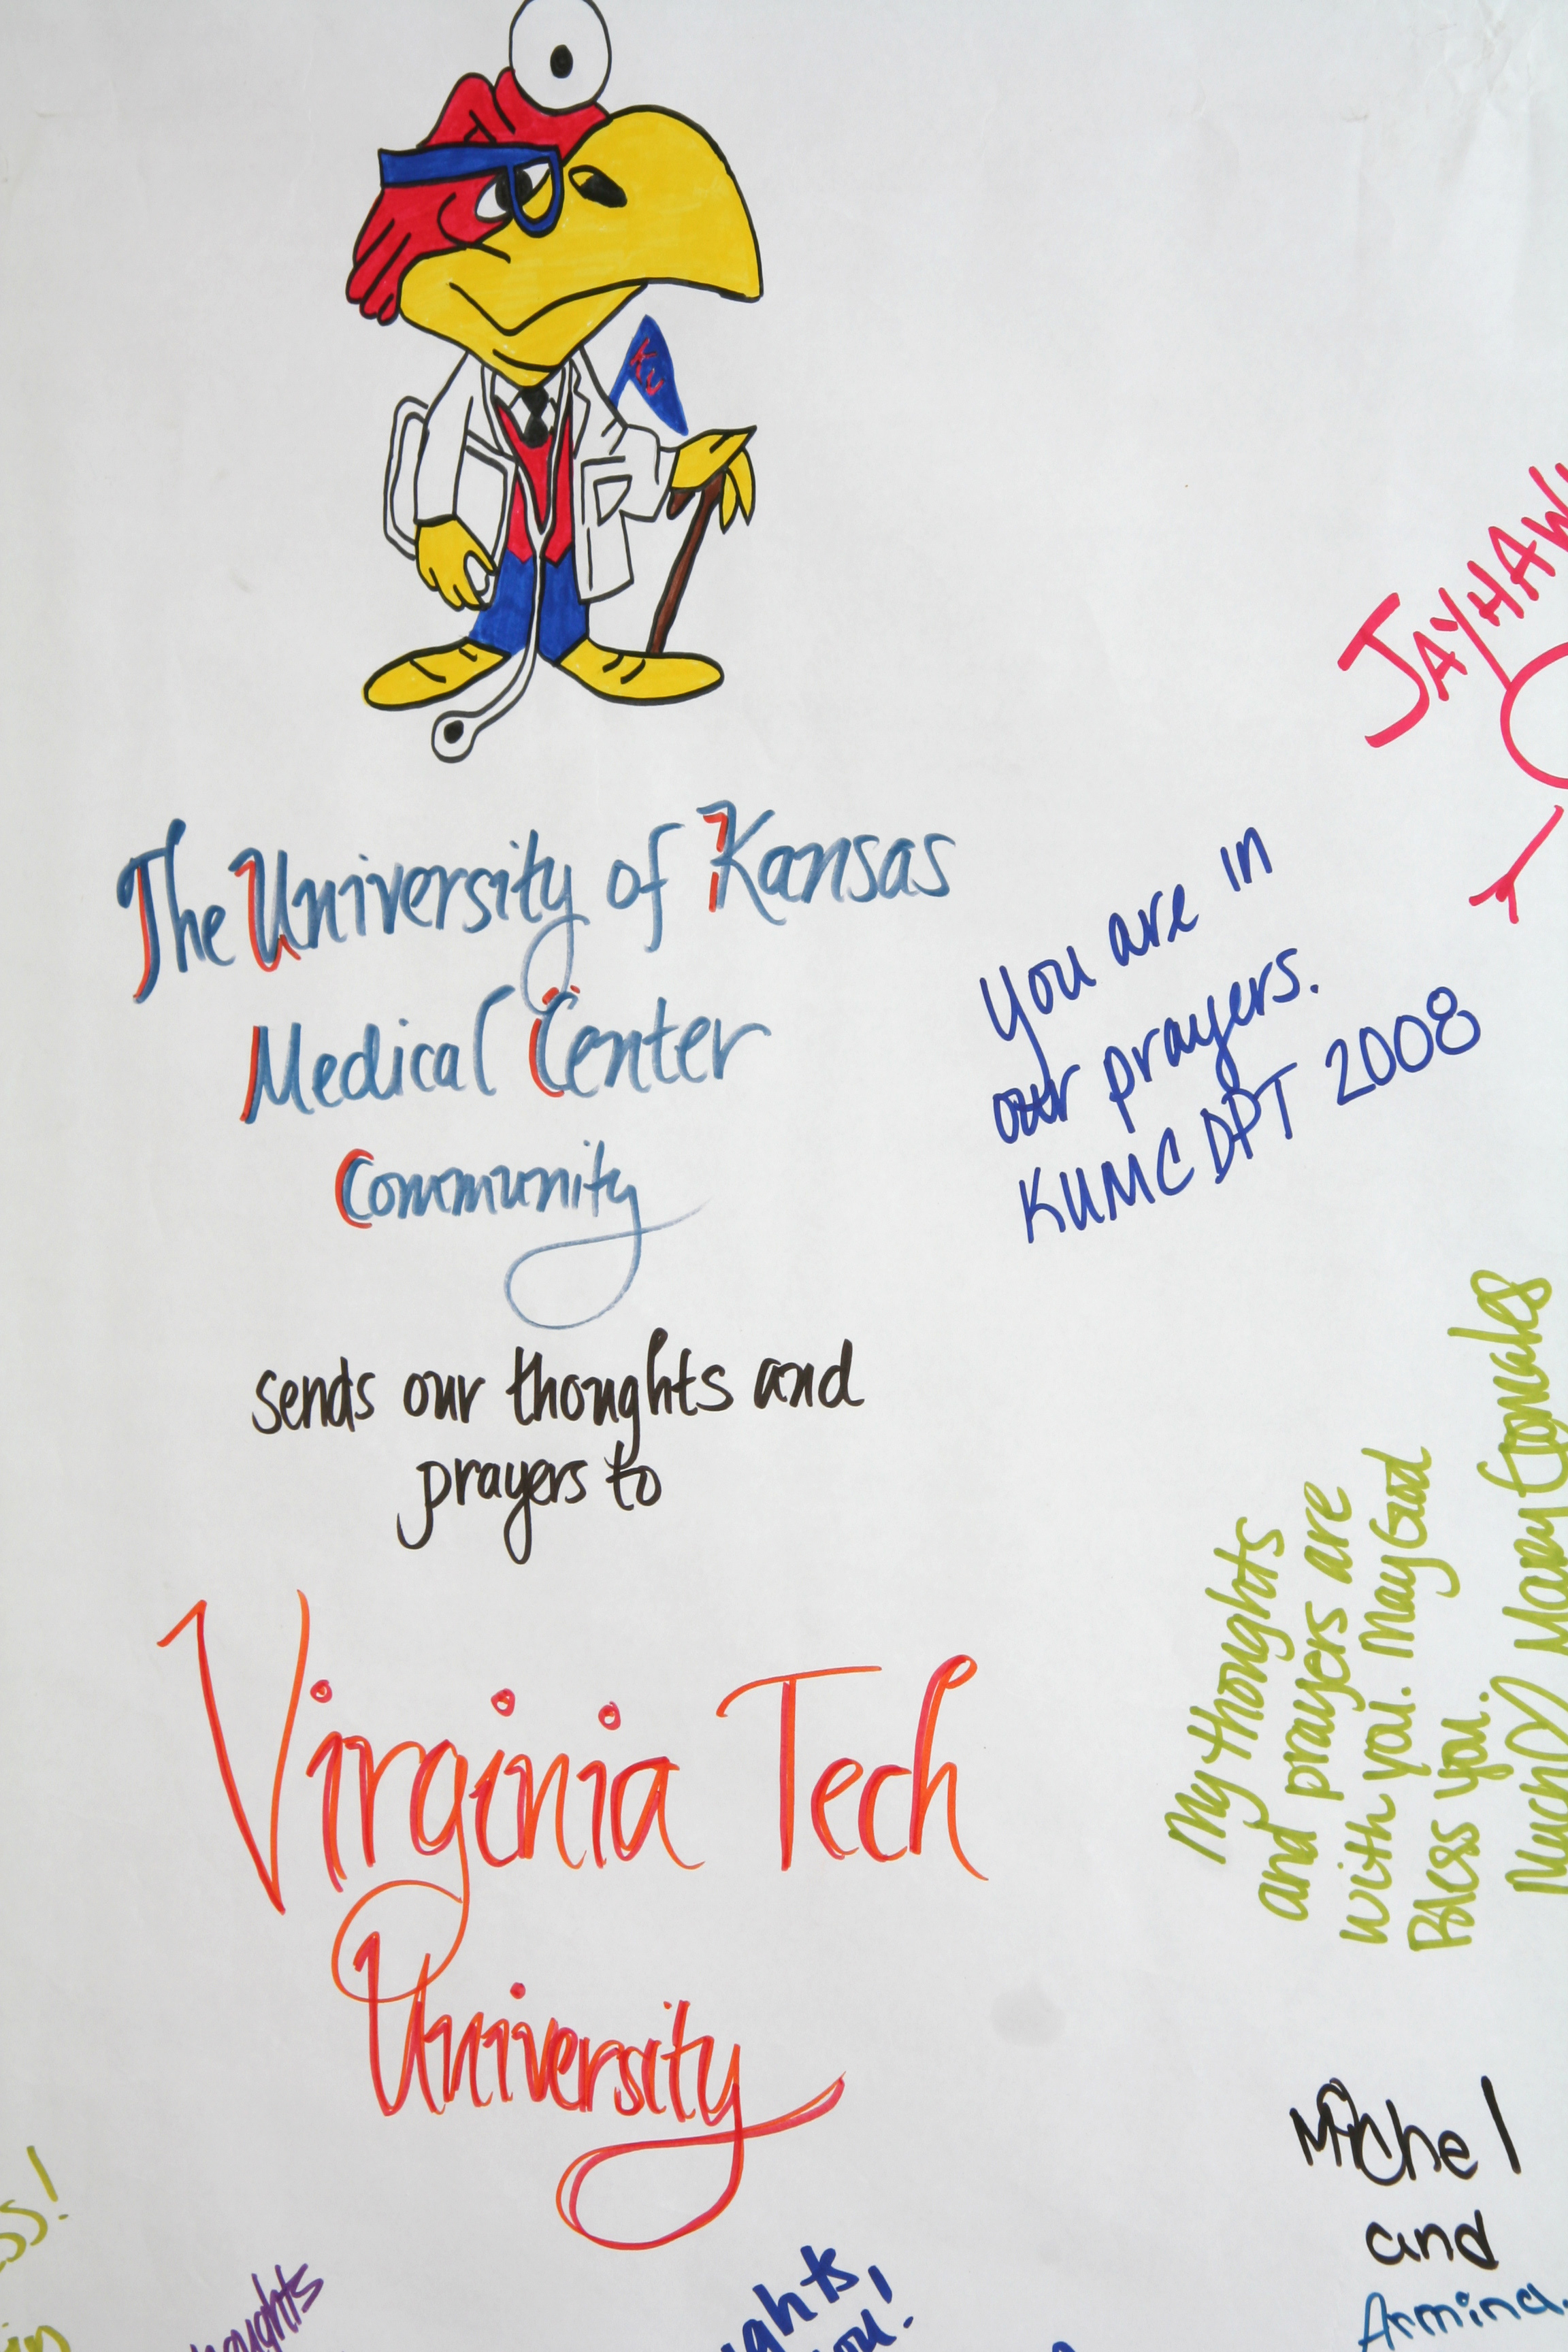 KU
The University of Kansas
Medical Center
Community
sends our thoughts and
prayers to
Virginia Tech
University
JAYHAW
You are in
our prayers.
KUMC DPT 2008
My thoughts
and prayers are
with you. May God
Bless you.
Much Mary Gonzales
Michel
and
Armina.